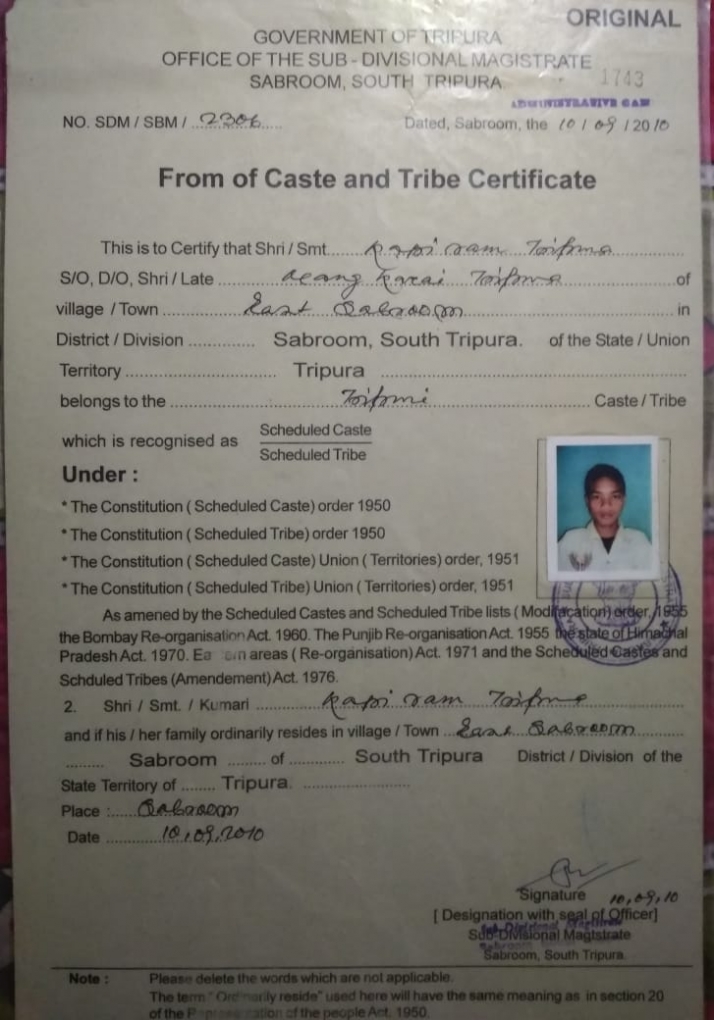 ORIGINAL
GOVERNMENT OF TRIPURA
OFFICE OF THE SUB - DIVISIONAL MAGISTRATE
SABROOM, SOUTH TRIPURA
1743
NO. SDM / SBM / 2306
Dated, Sabroom, the 10 / 09 / 2010
From of Caste and Tribe Certificate
This is to Certify that Shri / Smt. Kapi ram Tripura
S/O, D/O, Shri / Late Tripura of
village / Town East Sabroom in
District / Division Sabroom, South Tripura. of the State / Union
Territory Tripura
belongs to the Tripuri Caste / Tribe
which is recognised as Scheduled Caste
Scheduled Tribe
Under :
* The Constitution ( Scheduled Caste) order 1950
* The Constitution ( Scheduled Tribe) order 1950
* The Constitution ( Scheduled Caste) Union ( Territories) order, 1951
* The Constitution ( Scheduled Tribe) Union ( Territories) order, 1951
As amened by the Scheduled Castes and Scheduled Tribe lists ( Modifacation) order, 1955
the Bombay Re-organisation Act. 1960. The Punjib Re-organisation Act. 1955 the state of Himachal
Pradesh Act. 1970. areas ( Re-organisation) Act. 1971 and the Scheduled Castes and
Schduled Tribes (Amendement) Act. 1976.
2. Shri / Smt. / Kumari Kapi ram Tripura
and if his / her family ordinarily resides in village / Town East Sabroom
Sabroom of South Tripura District / Division of the
State Territory of Tripura.
Place : Sabroom
Date 10.09.2010
Signature 10.09.10
[ Designation with seal of Officer]
Sub-Divisional Magtstrate
Sabroom, South Tripura.
Note : Please delete the words which are not applicable.
The term " Ordinarily reside" used here will have the same meaning as in section 20
of the of the people Act. 1950.